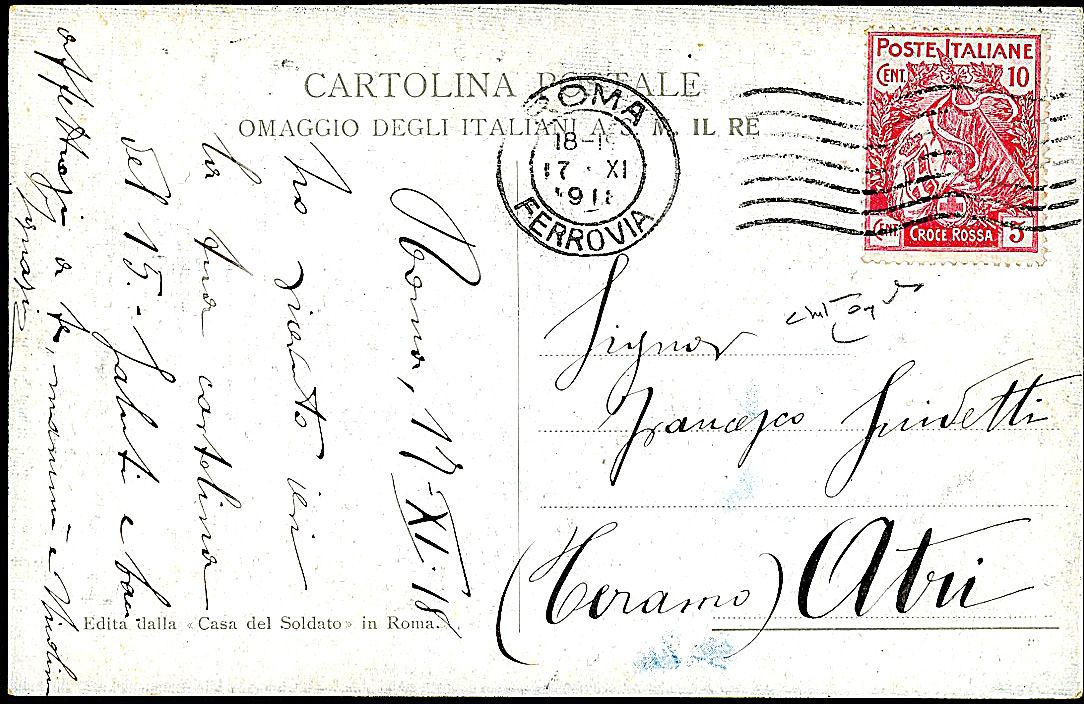 CARTOLINA POSTALE
OMAGGIO DEGLI ITALIANI A S. M. IL RE
ROMA
18-19
17 · XI
1918
FERROVIA
POSTE ITALIANE
CENT. 10
CENT. 5
CROCE ROSSA
Roma, 17-XI-18
Ho ricevuto ieri
la tua cartolina
del 15. Saluti e baci
affettuosi a te, mamma e
Ignazio
Signor
Francesco Guidetti
(Teramo) Atri
Edita dalla «Casa del Soldato» in Roma.